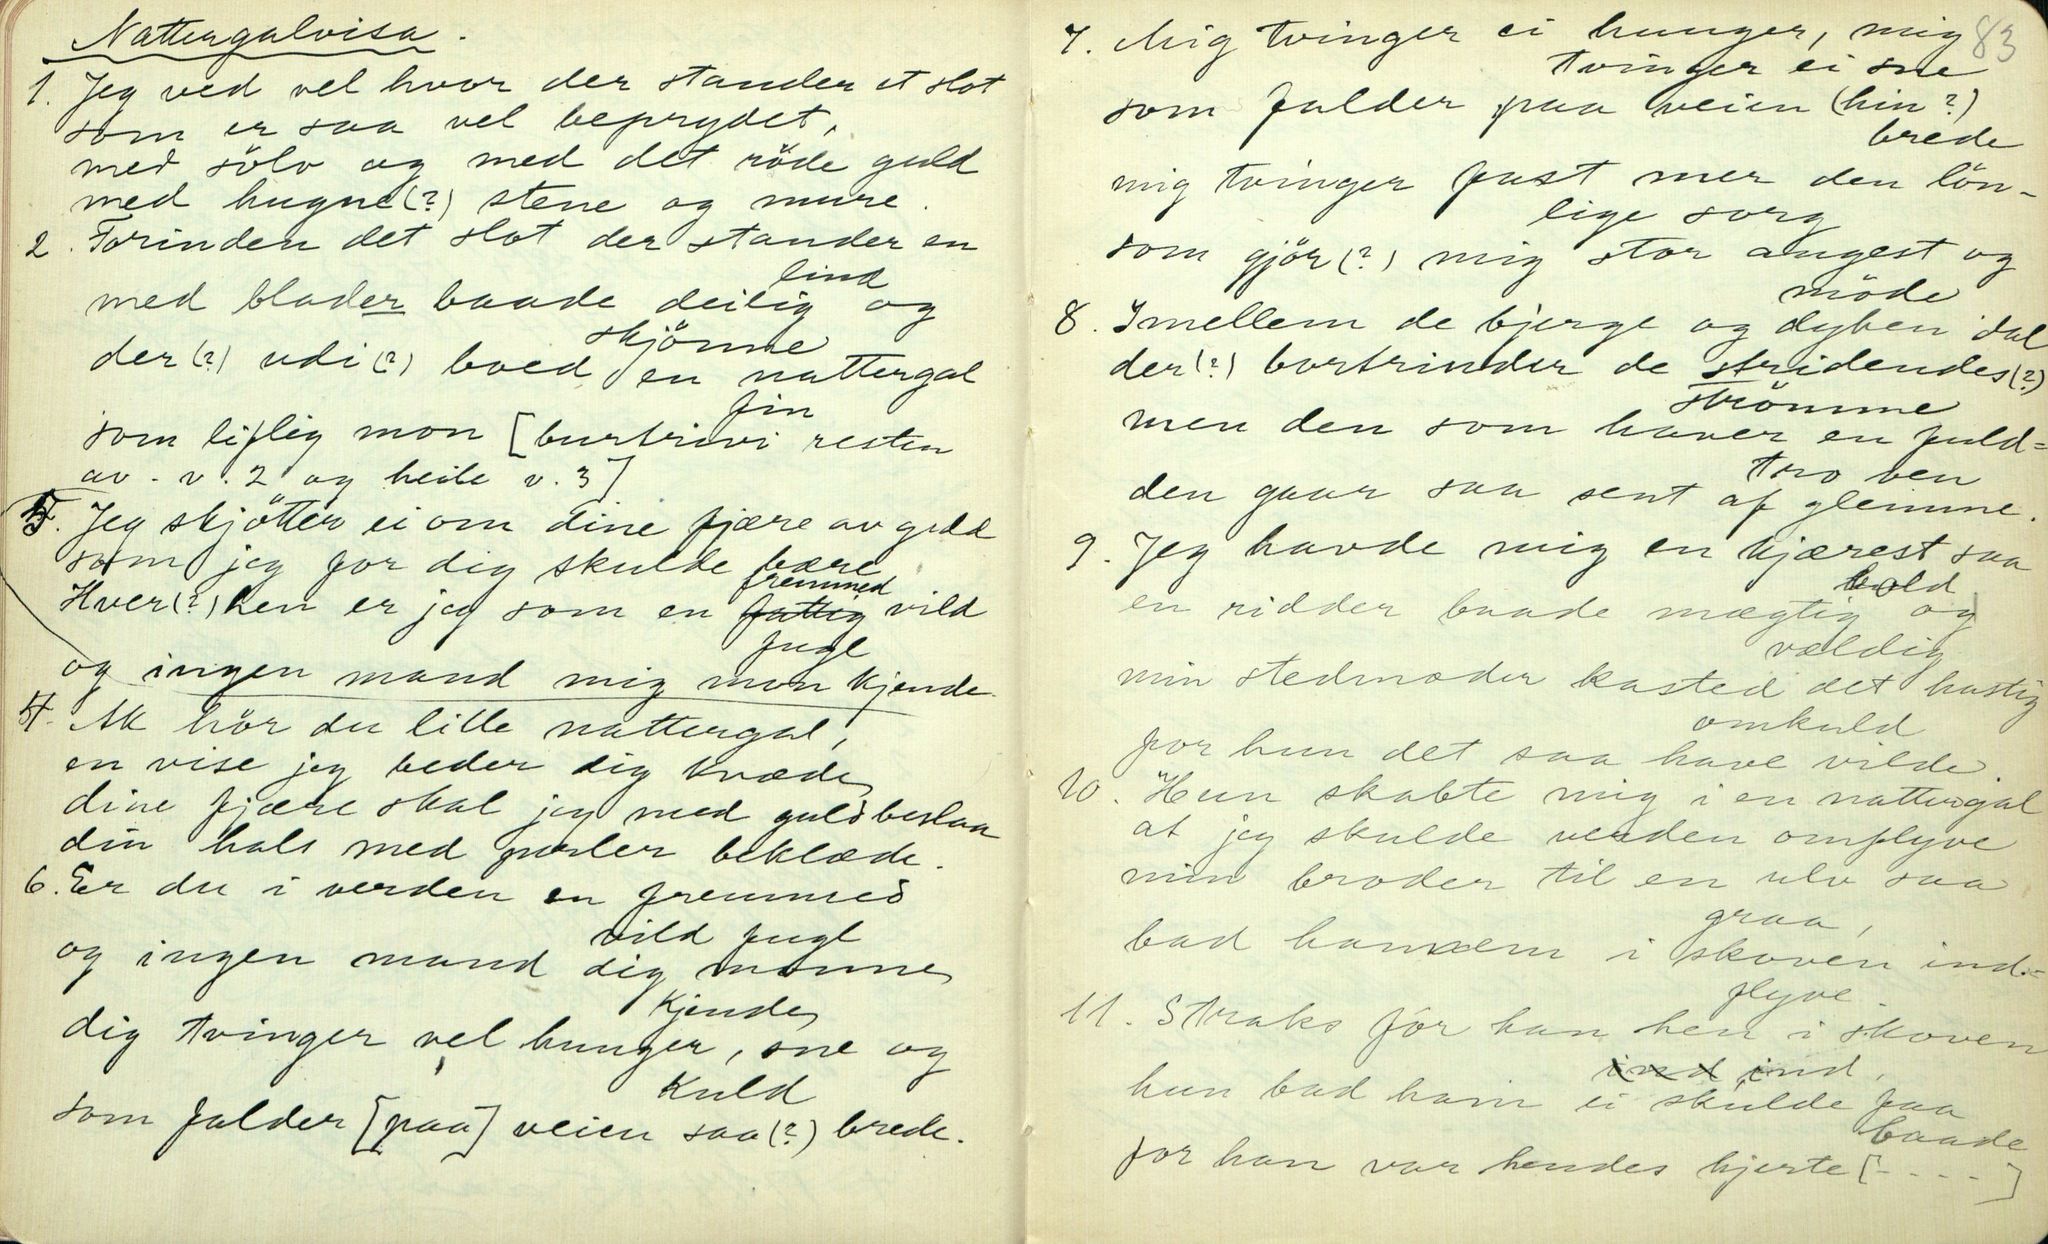 Nattergalvisa.
1. Jeg ved vel hvor der stander et slot
som er saa vel beprydet,
med sölv og med det röde guld
med hugne(?) stene og mure.
2. Forinden det slot der stander en
lind
med blader baade deilig og
skjönne
der(?) udi(?) boed en nattergal
fin
som liflig mon [burtrivi resten
av. v. 2 og heile v. 3]
5. Jeg skjötter ei om dine fjære av guld
som jeg for dig skulde bære
Hver(?) hen er jeg som en fattig fremmed vild
fugl
og ingen mand mig mon kjende.
4. Ak hör du lille nattergal,
en vise jeg beder dig kvæde
dine fjære skal jeg med guld beslaa
din hals med perler beklæde.
6. Er du i verden en fremmed
vild fugl
og ingen mand dig monne
kjende
dig tvinger vel hunger, sne og
kuld
som falder [paa] veien saa(?) brede.
83
7. Mig tvinger ei hunger, mig
tvinger ei sne
som falder paa veien (hin?)
brede
mig tvinger fast mer den lön-
lige sorg
som gjör(?) mig stor angest og
möde
8. Imellem de bjerge og dyben dal
der(?) bortrinder de stridendes(?)
strömme
men den som haver en fuld=
tro ven
den gaar saa sent af glemme.
9. Jeg havde mig en kjærest saa
bold
en ridder baade mægtig og
vældig
min stedmoder kasted det hastig
omkuld
for hun det saa have vilde.
10. Hun skabte mig i en nattergal
at jeg skulde verden omflyve
min broder til en ulv saa
graa,
bad hannem i skoven ind=
flyve.
11. Straks fór han hen i skoven
ind ind,
hun bad ham ei skulde faa
baade
for han var hendes hjerte [- - - -]